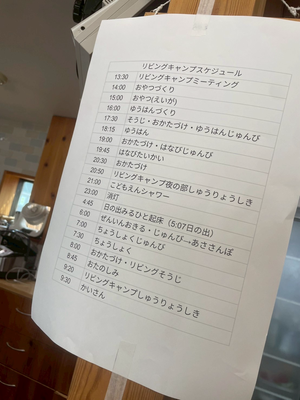 リビングキャンプスケジュール
13:30 リビングキャンプミーティング
14:00 おやつづくり
15:00 おやつ(えいが)
16:00 ゆうはんづくり
17:30 そうじ・おかたづけ・ゆうはんじゅんび
18:15 ゆうはん
19:00 おかたづけ・はなびじゅんび
19:45 はなびたいかい
20:30 おかたづけ
20:50 リビングキャンプ夜の部しゅうりょうしき
21:00 こどもえんシャワー
23:00 消灯
4:45 日の出みるひと起床（5:07日の出）
6:00 ぜんいんおきる・じゅんび→あささんぽ
7:00 ちょうしょくじゅんび
7:30 ちょうしょく
8:00 おかたづけ・リビングそうじ
8:45 おたのしみ
9:20 リビングキャンプしゅうりょうしき
9:30 かいさん